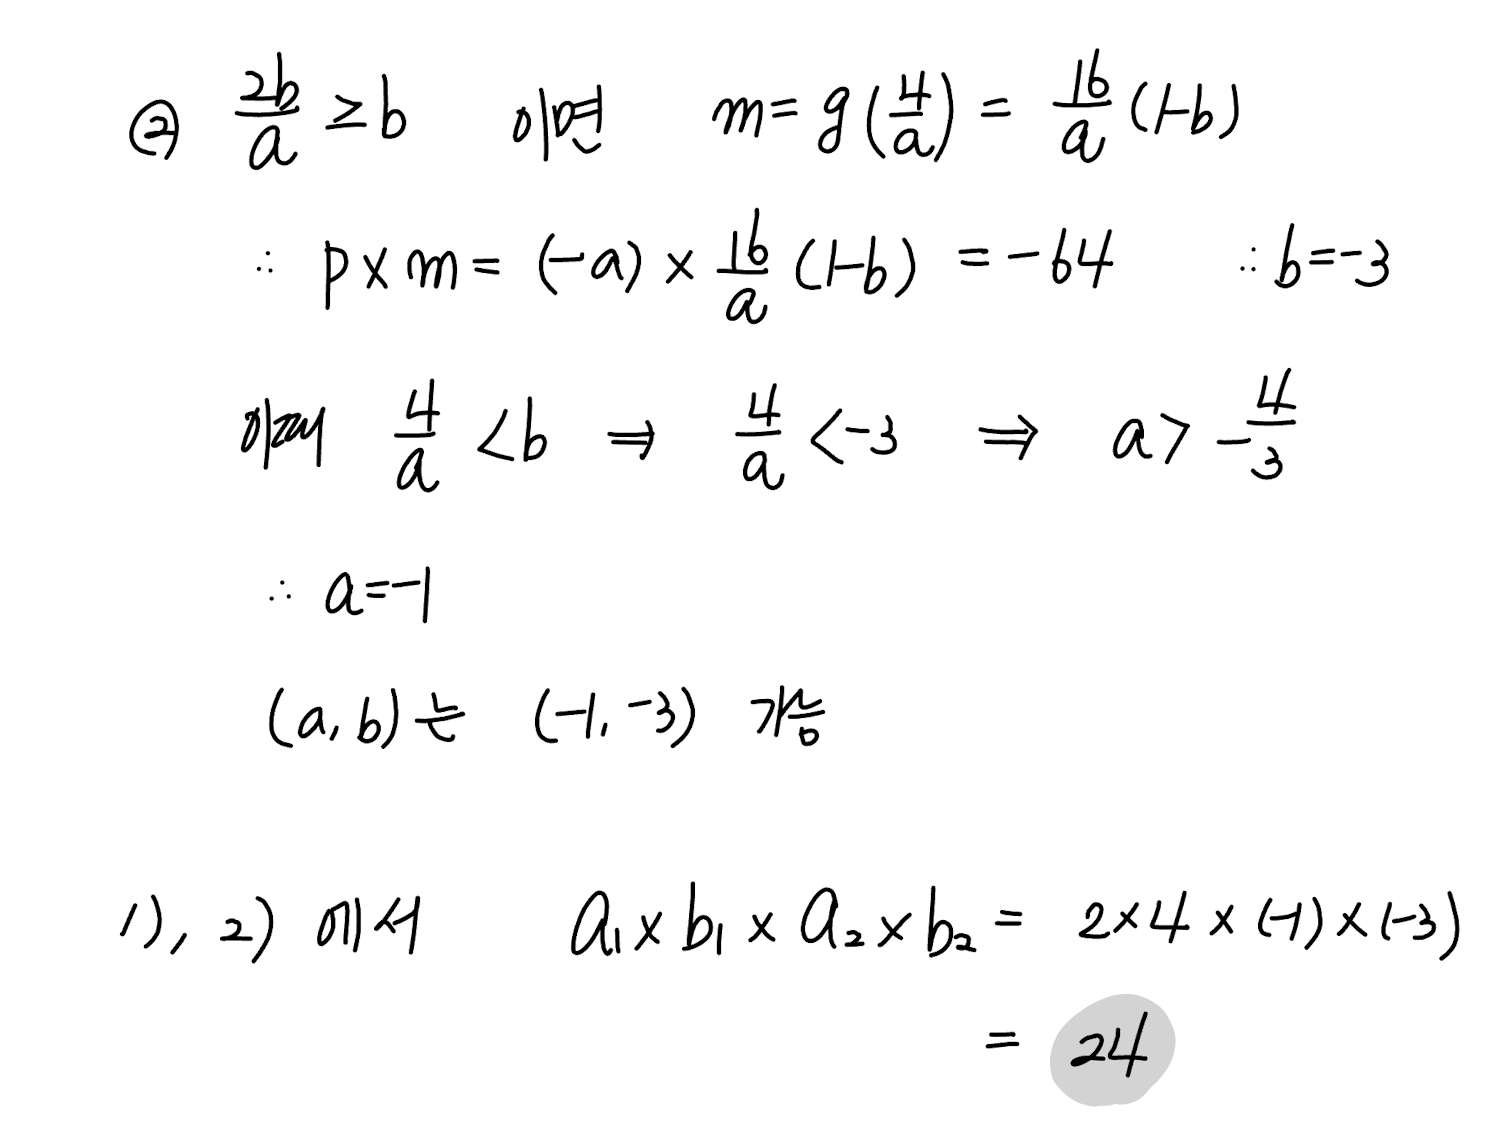 ② 2b/a ≥ b 이면 m = g(4/a) = 16/a (1-b)
∴ p × m = (-a) × 16/a (1-b) = -64 ∴ b = -3
이때 4/a < b ⇒ 4/a < -3 ⇒ a > -4/3
∴ a = -1
(a, b)는 (-1, -3) 가능
1), 2) 에서 a₁ × b₁ × a₂ × b₂ = 2 × 4 × (-1) × (-3)
= 24